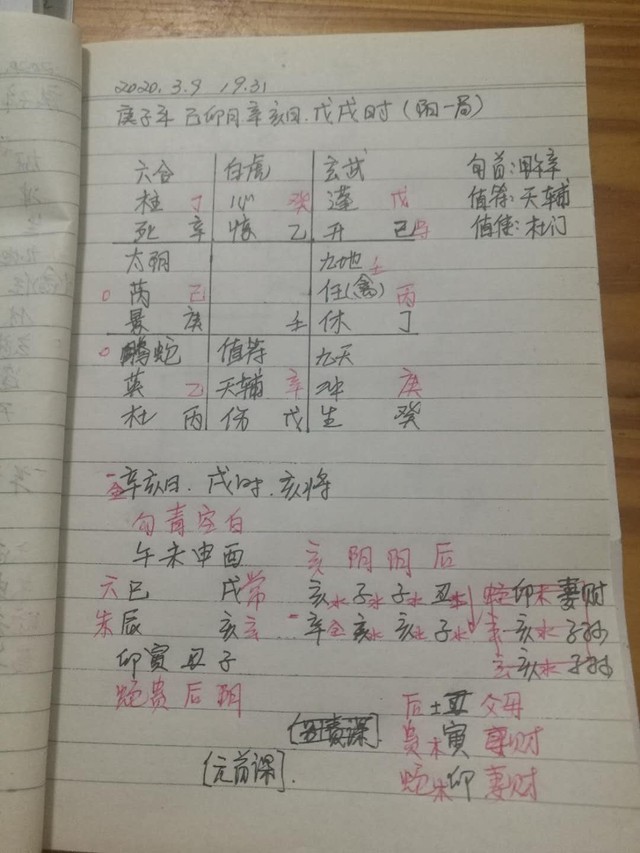 2020.3.9 19.31
庚子年 己卯月 辛亥日. 戊戌时 (阳一局)
六合 白虎 玄武 旬首:甲午辛
柱 丁 心 癸 蓬 戊 值符:天辅
死 辛 惊 乙 开 己 值使:杜门
太阴 九地 壬
芮 己 任(禽) 丙
景 庚 壬 休 丁
螣蛇 值符 九天
英 乙 天辅 辛 冲 庚
杜 丙 伤 戊 生 癸
辛亥日. 戌时. 亥将
勾青空白
午未申酉 玄阴阴后
六巳 戌常 亥水子水子水丑土 蛇卯木妻财
朱辰 亥玄 辛金亥水亥水子水 玄亥水子孙
卯寅丑子 玄亥水子孙
蛇贵后阴
后土丑父母
贵木寅妻财
[元首课]. 蛇木卯妻财